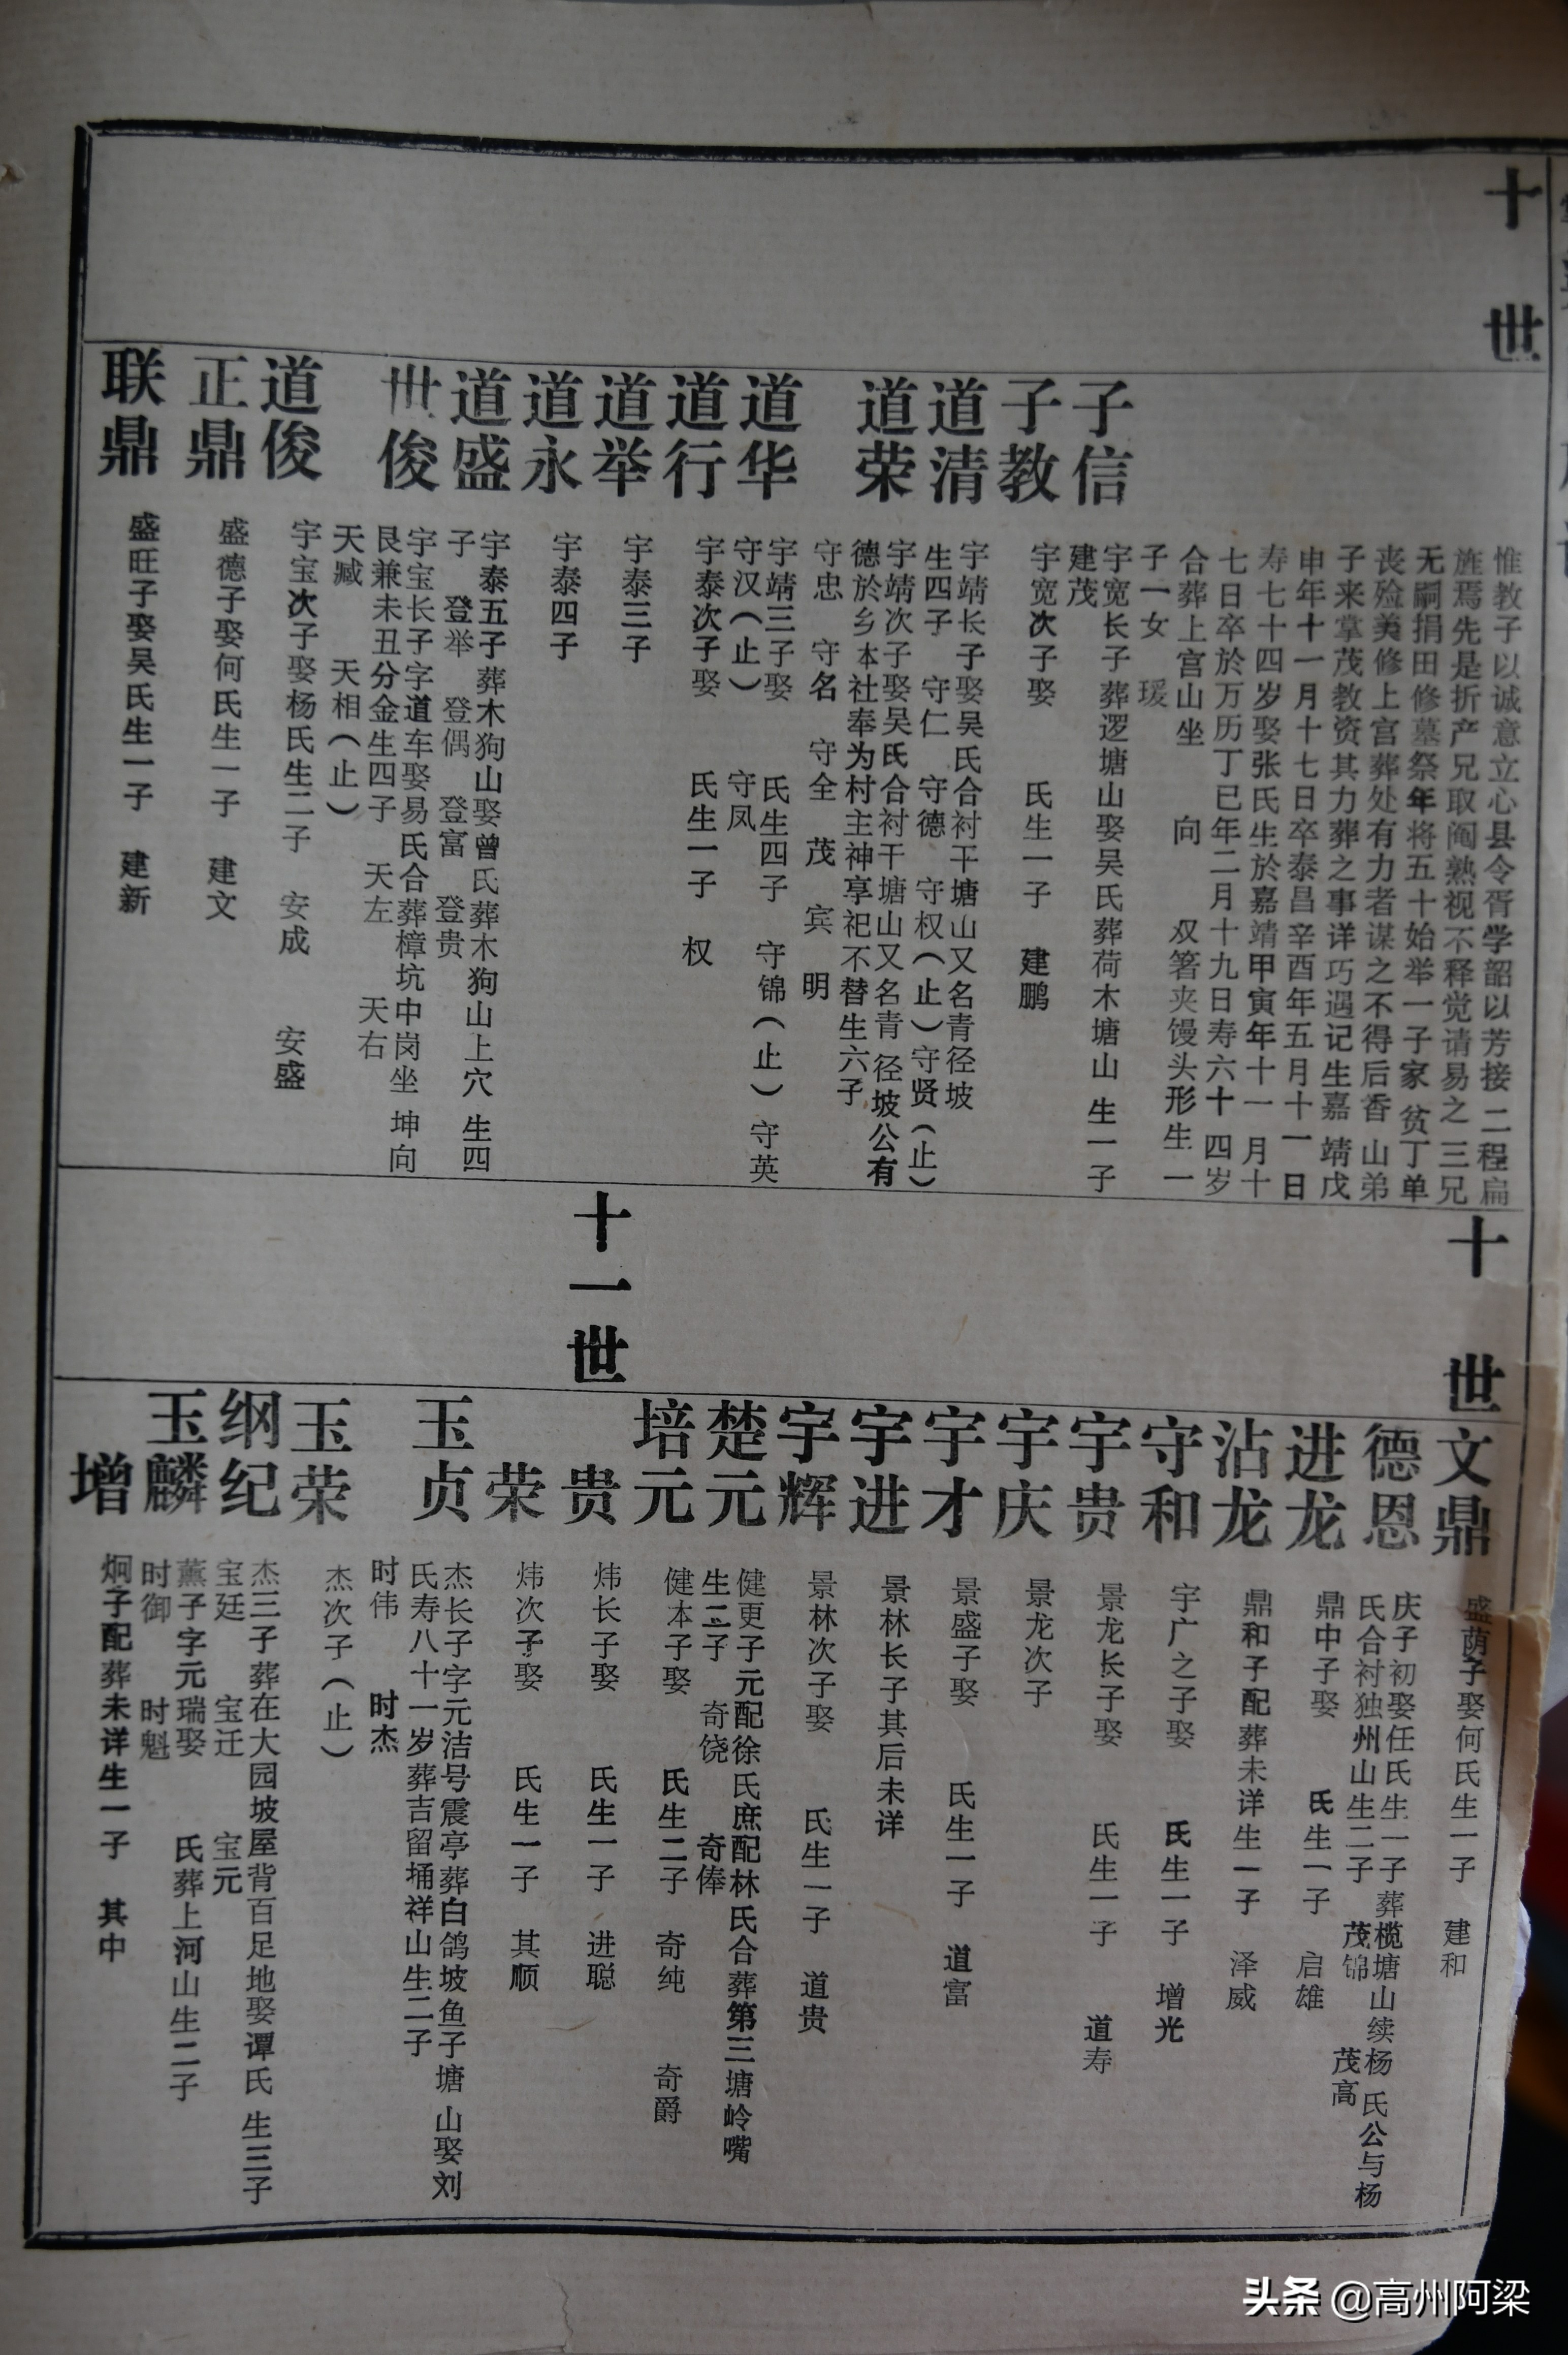 十世
惟教子以诚意立心县令胥学韶以芳接二程扁
旌焉先是折产兄取阄熟视不释觉请易之三兄
无嗣捐田修墓祭年将五十始举一子家贫丁单
丧殓美修上宫葬处有力者谋之不得后香山弟
子来掌茂教资其力葬之事详巧遇记生嘉靖戊
申年十一月十七日卒泰昌辛酉年五月十一日
寿七十四岁娶张氏生於嘉靖甲寅年十一月十
七日卒於万历丁巳年二月十九日寿六十四岁
合葬上宫山坐 向 双箸夹馒头形生一
子一女 瑗
子信
宇宽长子葬逻塘山娶吴氏葬荷木塘山生一子
建茂
子教
宇宽次子娶 氏生一子 建鹏
道清
宇靖长子娶吴氏合衬干塘山又名青径坡
生四子 守仁 守德 守权(止)守贤(止)
道荣
宇靖次子娶吴氏合衬干塘山又名青径坡公有
德於乡本社奉为村主神享祀不替生六子
守忠 守名 守全 茂 宾 明
道华
宇靖三子娶 氏生四子 守锦(止)守英
守汉(止) 守凤
道行
宇泰次子娶 氏生一子 权
道举
宇泰三子
道永
宇泰四子
道盛
宇泰五子葬木狗山娶曾氏葬木狗山上穴生四
子 登举 登偶 登富 登贵
世俊
宇宝长子字道车娶易氏合葬樟坑中岗坐坤向
艮兼未丑分金生四子 天左 天右
天臧 天相(止)
道俊
宇宝次子娶杨氏生二子 安成 安盛
正鼎
盛德子娶何氏生一子 建文
联鼎
盛旺子娶吴氏生一子 建新
十世
文鼎
盛荫子娶何氏生一子 建和
德恩
庆子初娶任氏生一子葬榄塘山续杨氏公与杨
氏合衬独州山生二子 茂锦 茂高
进龙
鼎中子娶 氏生一子 启雄
沾龙
鼎和子配葬未详生一子 泽威
守和
宇广之子娶 氏生一子 增光
宇贵
景龙长子娶 氏生一子 道寿
宇庆
景龙次子
宇才
景盛子娶 氏生一子 道富
宇进
景林长子其后未详
宇辉
景林次子娶 氏生一子 道贵
楚元
健更子元配徐氏庶配林氏合葬第三塘岭嘴
生二子 奇饶 奇俸
培元
健本子娶 氏生二子 奇纯 奇爵
十一世
贵
炜长子娶 氏生一子 进聪
荣
炜次子娶 氏生一子 其顺
玉贞
杰长子字元洁号震亭葬白鸽坡鱼子塘山娶刘
氏寿八十一岁葬吉留埇祥山生二子
时伟 时杰
玉荣
杰次子(止)
纲纪
杰三子葬在大园坡屋背百足地娶谭氏生三子
宝廷 宝迁 宝元
玉麟
薰子字元瑞娶 氏葬上河山生二子
时御 时魁
增
炯子配葬未详生一子 其中
头条 @高州阿梁